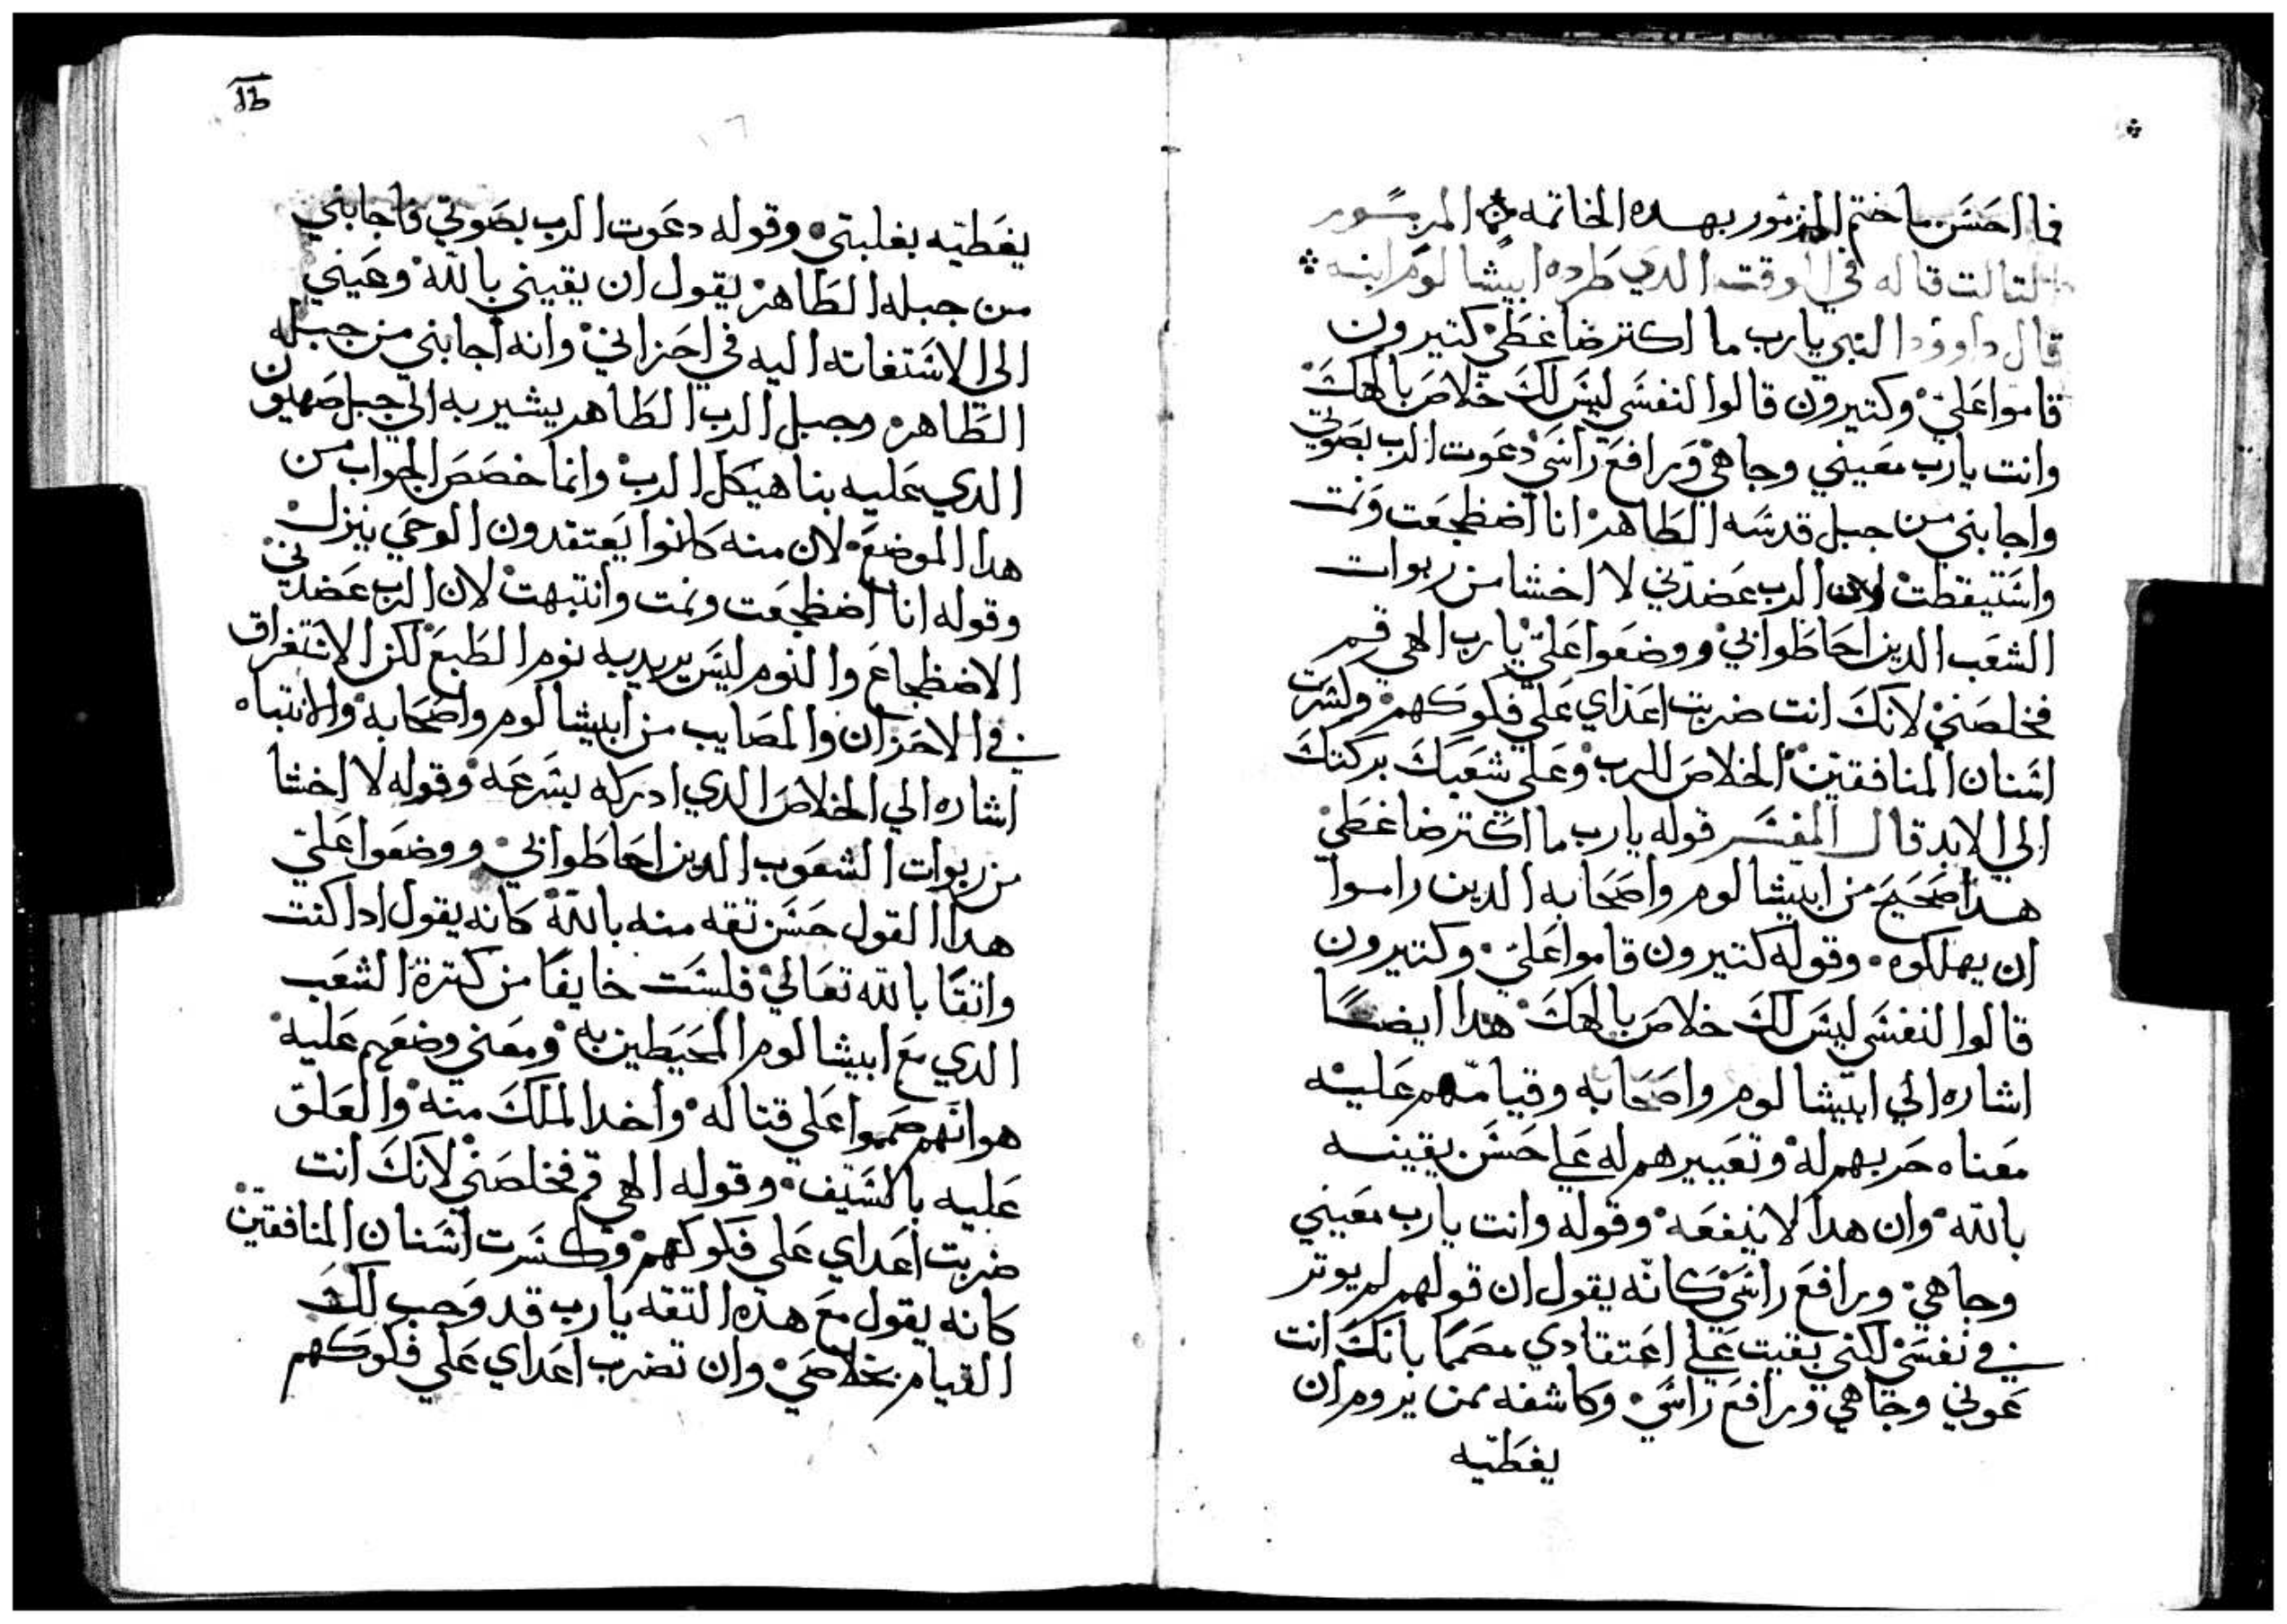 فما احسن ما ختم المزمور بهده الخاتمه المزمور
التالت قاله في الوقت الدي طرده ابيشالوم ابنه
قال داوود النبي يارب ما اكتر ضاغطي كتيرون
قاموا علي وكتيرون قالوا لنفسي ليس لك خلاص بالهك
وانت يارب معيني وجاهي ورافع راسي دعوت الرب بصوتي
واجابني من جبل قدسه الطاهر انا اضطجعت ونمت
واستيقظت لان الرب عضدني لا اخشا من ربوات
الشعب الدين احاطوا بي ووضعوا علي يارب الهي قم
فخلصني لانك انت ضربت اعداي علي فكوكهم وكسرت
اسنان المنافقين الخلاص للرب وعلي شعبك بركتك
الي الابد قال المفسر قوله يارب ما اكتر ضاغطي
هدا صحيح من ابيشالوم واصحابه الدين راموا
ان يهلكوه وقوله كتيرون قاموا علي وكتيرون
قالوا لنفسي ليس لك خلاص بالهك هدا ايضا
اشاره الي ابيشالوم واصحابه وقيامهم عليه
معناه حربهم له وتعييرهم له علي حسن يقينه
بالله وان هدا لا ينفعه وقوله وانت يارب معيني
وجاهي ورافع راسي كانه يقول ان قولهم لم يوتر
في نفسي لكني بقيت علي اعتقادي مصمما بانك انت
عوني وجاهي ورافع راسي وكاشفه ممن يروم ان
يغطيه
يغطيه بغلبتي وقوله دعوت الرب بصوتي فاجابني
من جبله الطاهر يقول ان يقيني بالله وعيني
الي الاستغاته اليه في احزاني وانه اجابني من جبله
الطاهر وجبل الرب الطاهر يشير به الي جبل صهيون
الدي عليه بنا هيكل الرب وانما خصص الجواب من
هدا الموضع لان منه كانوا يعتقدون الوحي ينزل
وقوله انا اضطجعت ونمت وانتبهت لان الرب عضدني
الاضطجاع والنوم ليس يريد به نوم الطبع لكن الاستغراق
في الاحزان والمصايب من ابيشالوم واصحابه والانتباه
اشاره الي الخلاص الدي ادركه بسرعه وقوله لا اخشا
من ربوات الشعوب الدين احاطوا بي ووضعوا علي
هدا القول حسن تقه منه بالله كانه يقول ادا كنت
واتقا بالله تعالي فلست خايفا من كترة الشعب
الدي مع ابيشالوم المحيطين به ومعني وضعهم عليه
هو انهم صمموا علي قتاله واخد الملك منه والعلق
عليه بالسيف وقوله الهي قم فخلصني لانك انت
ضربت اعداي علي فكوكهم وكسرت اسنان المنافقين
كانه يقول مع هده التقه يارب قد وجب لك
القيام بخلاصي وان تضرب اعداي علي فكوكهم